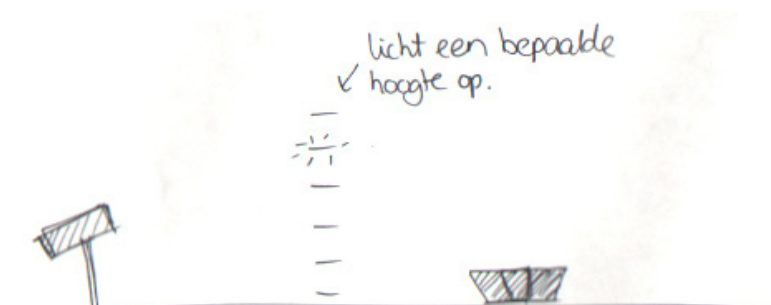 licht een bepaalde
hoogte op.